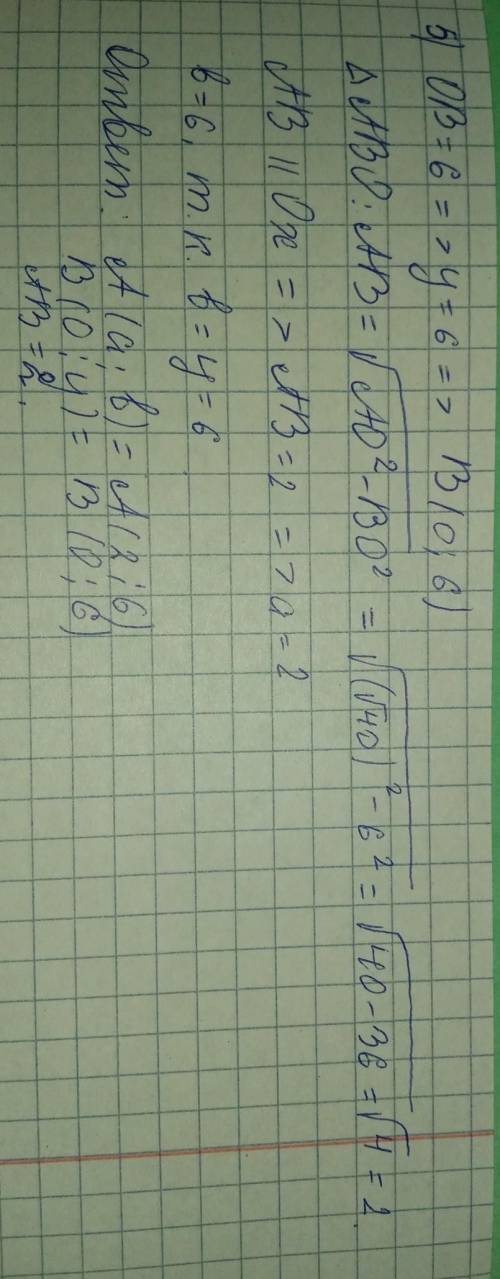 5) OB = 6 => y = 6 => B(0; 6)
△ABO: AB = √(AO² - BO²) = √((√40)² - 6²) = √(40 - 36) = √4 = 2
AB || Ox => AB = 2 => a = 2
b = 6, т.к. b = y = 6
Ответ: A(a; b) = A(2; 6)
B(0; y) = B(0; 6)
AB = 2.